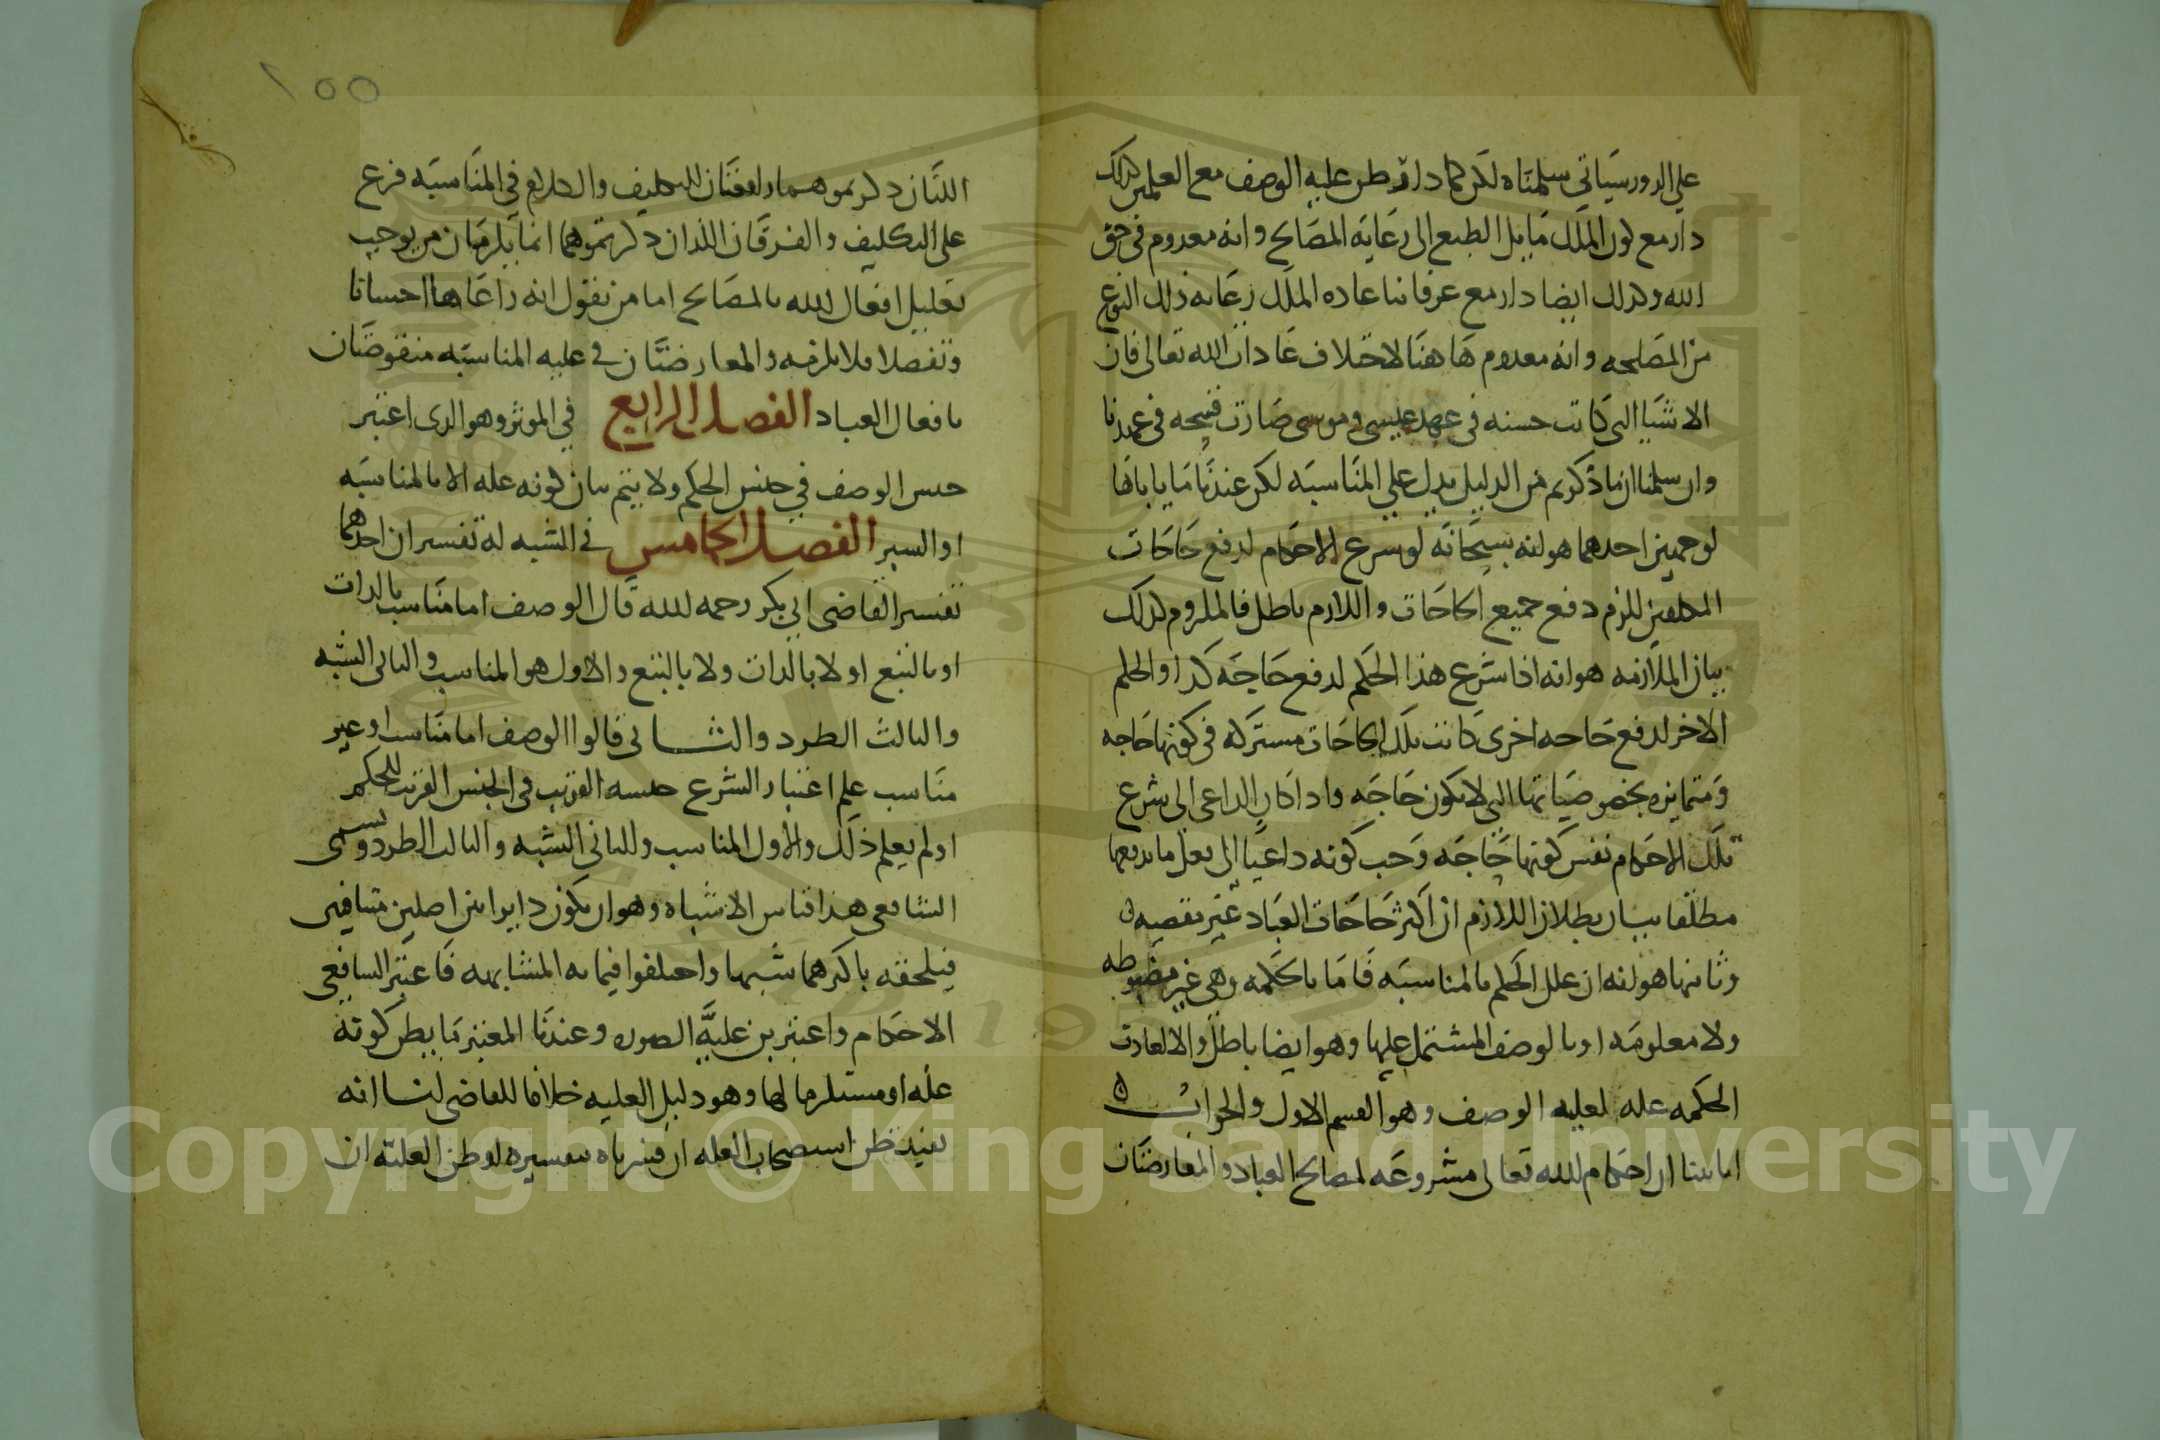 على الدور سيأتي سلمناه لكن كما دار ظن علية الوصف مع العلمين كذلك
دار مع كون الملك مايل الطبع الى رعاية المصالح وانه معدوم في حق
الله وكذلك ايضا دار مع عرفاننا عادة الملك رعاية ذلك النوع
من المصلحه وانه معدوم هاهنا لاختلاف عادات الله تعالى فان
الاشيا التي كانت حسنه في عهد عيسى وموسى صارت قبيحه في عهدنا
وان سلمنا ان ما ذكرتم من الدليل يدل على المناسبه لكن عندنا ما ياباها
لوجهين احدهما هو انه سبحانه لو شرع الاحكام لدفع حاجات
المكلفين للزم دفع جميع الحاجات واللازم باطل فالملزوم كذلك
بيان الملازمه هو انه اذا شرع هذا الحكم لدفع حاجه كذا والحكم
الاخر لدفع حاجه اخرى كانت تلك الحاجات مشتركه في كونها حاجه
ومتمايزه بخصوصياتها التي لا تكون حاجه واذا كان الداعي الى شرع
تلك الاحكام نفس كونها حاجه وجب كونه داعيا الى فعل ما يدفعها
مطلقا بيان بطلان اللازم ان اكثر حاجات العباد غير مقضيه
وثانيها هو انه ان علل الحكم بالمناسبه فاما بالحكمه وهي غير مضبوطه
ولا معلومه او بالوصف المشتمل عليها وهو ايضا باطل والا لعادت
الحكمه عله لعلية الوصف وهو القسم الاول والجواب
انا بينا ان احكام الله تعالى مشروعه لمصالح العباد والمعارضتان
اللتان ذكرتموهما رافعتان للتكليف والكلام في المناسبه فرع
على التكليف والفرقان اللذان ذكرتموهما انما يلزمان من يوجب
تعليل افعال الله بالمصالح اما من يقول انه راعاها احسانا
وتفضلا فلا يلزمه والمعارضتان في علية المناسبه منقوضتان
بافعال العباد الفصل الرابع في الموثر وهو الذي اعتبر
جنس الوصف في جنس الحكم ولا يتم بيان كونه عله الا بالمناسبه
او السبر الفصل الخامس في الشبه له تفسيران احدهما
تفسير القاضي ابي بكر رحمه الله قال الوصف اما مناسب بالذات
او بالتبع او لا بالذات ولا بالتبع والاول هو المناسب والثاني الشبه
والثالث الطرد والثاني قالوا الوصف اما مناسب او غير
مناسب علم اعتبار الشرع جنسه القريب في الجنس القريب للحكم
او لم يعلم ذلك والاول المناسب والثاني الشبه والثالث الطرد ويسمى
الشافعي هذا قياس الاشباه وهو ان يكون دايرا بين اصلين متنافيين
فيلحقه باكثرهما شبها واختلفوا فيما به المشابهه فاعتبر الشافعي
الاحكام واعتبر بن عليّه الصوره وعندنا المعتبر ما يظن كونه
عله او مستلزما لها وهو دليل العليه خلافا للقاضي لنا انه
يفيد ظن استصحاب العله ان فسرناه بتفسيره او ظن العليه ان
٢٥٥
Copyright © King Saud University